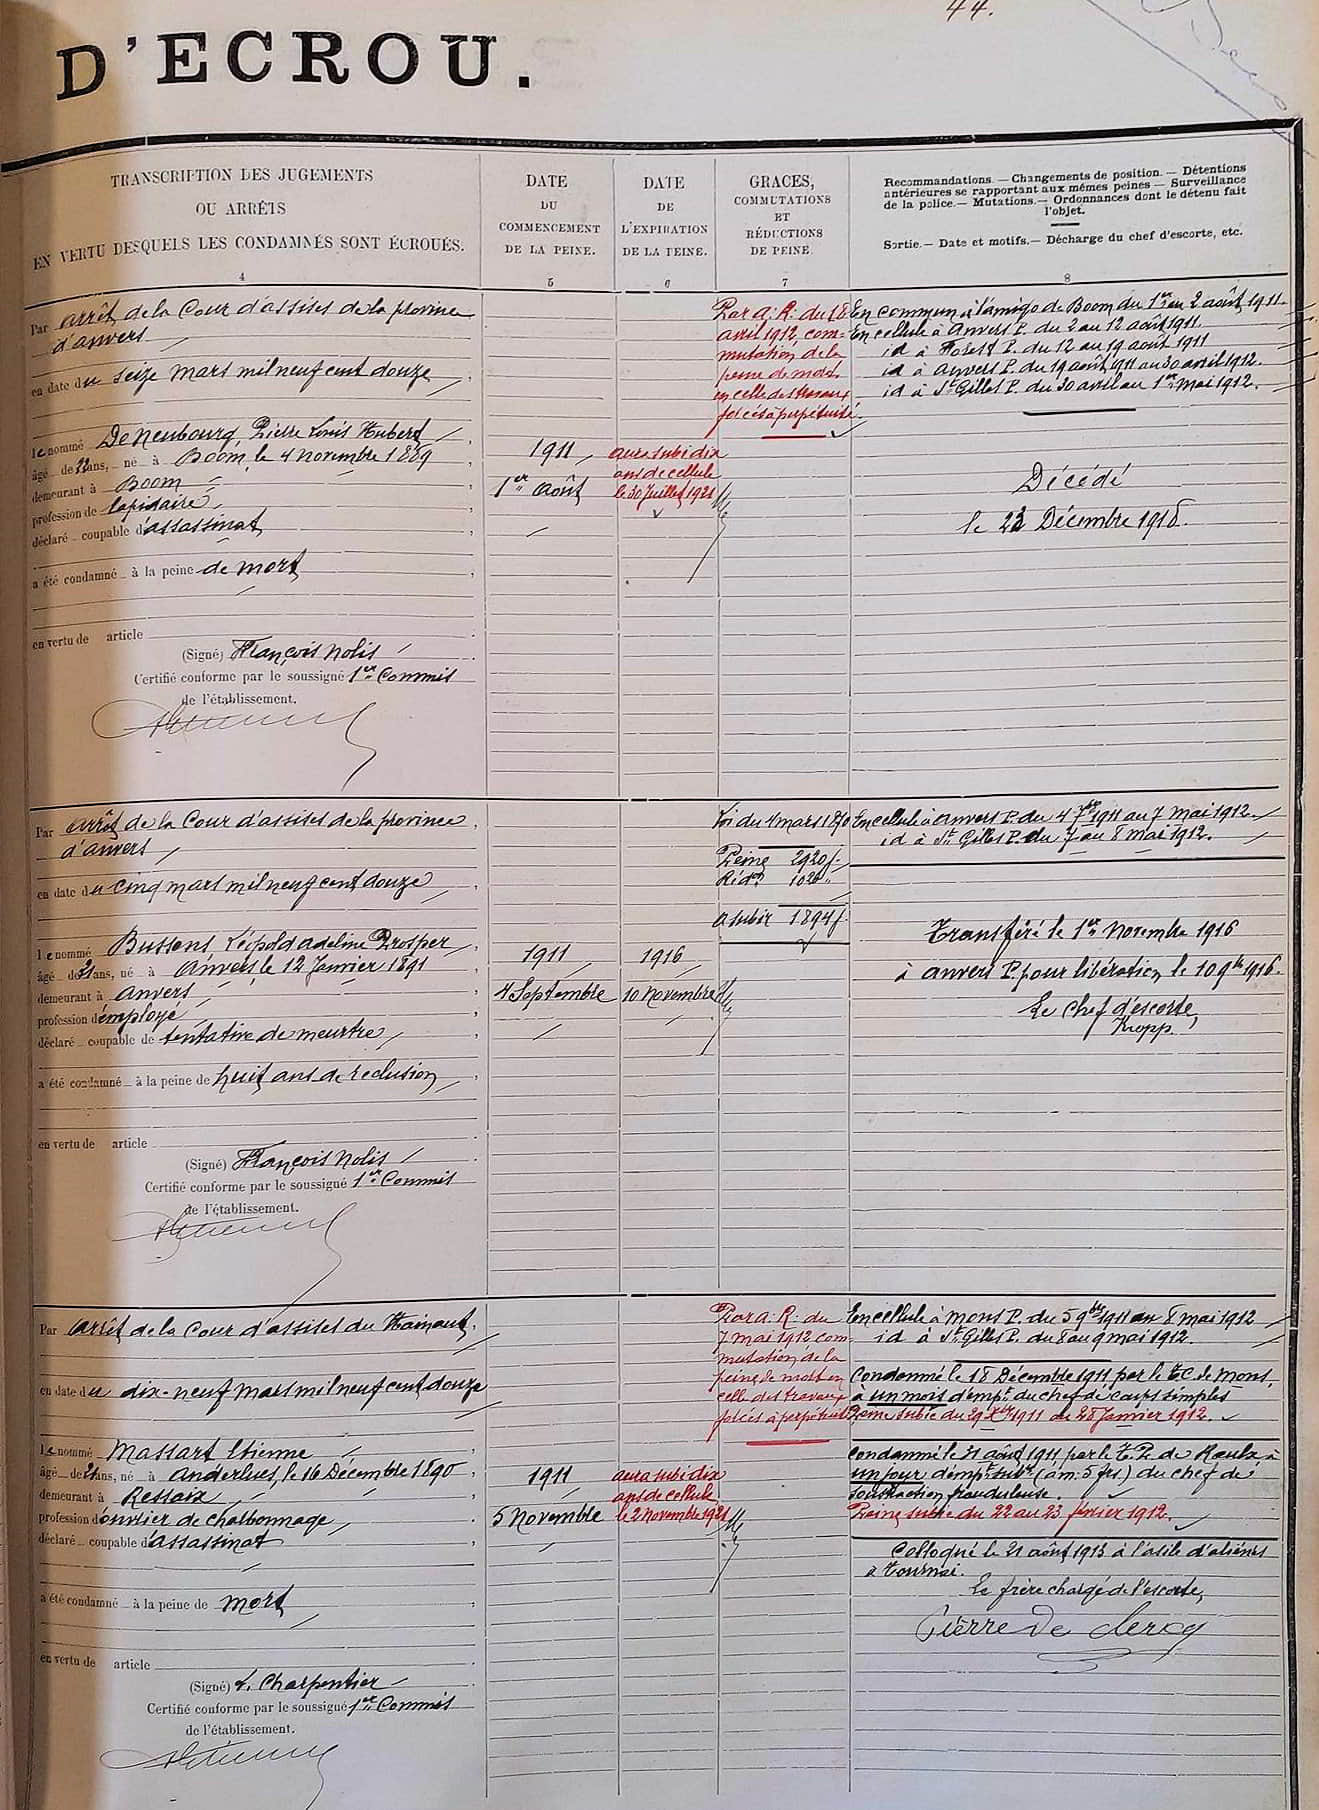 44.
D'ECROU.
TRANSCRIPTION DES JUGEMENTS
OU ARRÊTS
EN VERTU DESQUELS LES CONDAMNÉS SONT ÉCROUÉS.
4
DATE
DU
COMMENCEMENT
DE LA PEINE.
5
DATE
DE
L'EXPIRATION
DE LA PEINE.
6
GRACES,
COMMUTATIONS
ET
RÉDUCTIONS
DE PEINE
7
Recommandations. — Changements de position. — Détentions
antérieures se rapportant aux mêmes peines — Surveillance
de la police. — Mutations. — Ordonnances dont le détenu fait
l'objet.
Sortie. — Date et motifs. — Décharge du chef d'escorte, etc.
8
Par arrêt de la Cour d'assises de la province
d'anvers
en date du seize mars mil neuf cent douze
le nommé De Neubourg, Pierre Louis Hubert
âgé de 22 ans, né à Boom, le 4 novembre 1889
demeurant à Boom
profession de lapidaire
déclaré coupable d'assassinat
a été condamné à la peine de mort
en vertu de article
(Signé) François Nolis
Certifié conforme par le soussigné 1er Commis
de l'établissement.
1911
1er Août
aura subi dix
ans de cellule
le 30 Juillet 1921
Par A. R. du 18
avril 1912, com-
mutation de la
peine de mort
en celle des travaux
forcés à perpétuité.
En commun à l'amigo de Boom du 1er au 2 août 1911.
En cellule à Anvers P. du 2 au 12 août 1911.
id à Forest P. du 12 au 19 août 1911
id à Anvers P. du 19 août 1911 au 30 avril 1912.
id à St Gilles P. du 30 avril au 1er mai 1912.
Décédé
le 23 Décembre 1918.
Par arrêt de la Cour d'assises de la province
d'anvers
en date du cinq mars mil neuf cent douze
le nommé Bussens, Léopold adeline Prosper
âgé de 21 ans, né à Anvers, le 12 Janvier 1891
demeurant à Anvers
profession d'employé
déclaré coupable de tentative de meurtre
a été condamné à la peine de huit ans de réclusion
en vertu de article
(Signé) François Nolis
Certifié conforme par le soussigné 1er Commis
de l'établissement.
1911
4 Septembre
1916
10 Novembre
Loi du 4 mars 1870
Peine 2920 j.
Rédon 1026 "
à subir 1894 j.
En cellule à Anvers P. du 4 7bre 1911 au 7 mai 1912.
id à St Gilles P. du 7 au 8 mai 1912.
Transféré le 1er Novembre 1916
à anvers P. pour libération le 10 9bre 1916.
Le chef d'escorte,
Kropp.
Par arrêt de la Cour d'assises du Hainaut,
en date du dix-neuf mars mil neuf cent douze
le nommé Massart Etienne
âgé de 21 ans, né à Anderlues, le 16 Décembre 1890
demeurant à Ressaix
profession d'ouvrier de charbonnage
déclaré coupable d'assassinat
a été condamné à la peine de mort
en vertu de article
(Signé) L. Charpentier
Certifié conforme par le soussigné 1er Commis
de l'établissement.
1911
5 Novembre
aura subi dix
ans de cellule
le 2 novembre 1921
Par A. R. du
7 mai 1912 com-
mutation de la
peine de mort en
celle des travaux
forcés à perpétuité
En cellule à Mons P. du 5 9bre 1911 au 8 mai 1912
id à St Gilles P. du 8 au 9 mai 1912.
Condamné le 18 Décembre 1911 par le T.C. de Mons,
à un mois d'empt du chef de coups simples
Peine subie du 29 Xbre 1911 au 28 Janvier 1912.
Condamné le 31 août 1911, par le T.P. de Rœulx à
un jour d'empt subre (am: 5 frs) du chef de
soustraction frauduleuse.
Peine subie du 22 au 23 février 1912.
Colloqué le 21 août 1913 à l'asile d'aliénés
à Tournai.
Le frère chargé de l'escorte,
Pierre De Clercq